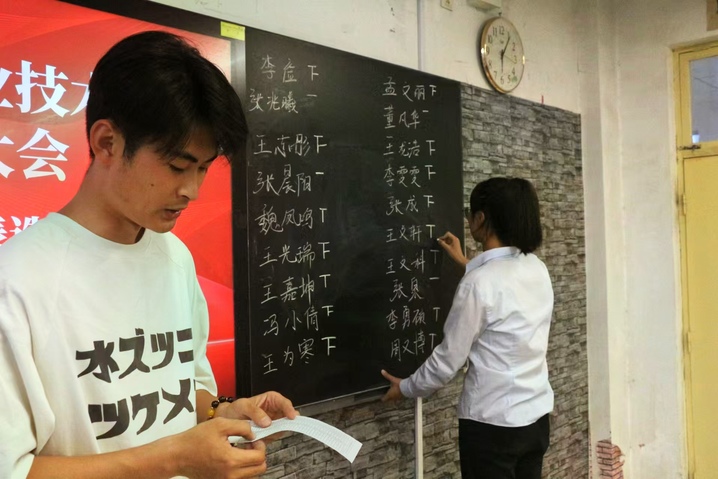 业技
大会
李应 下
张兆曦 一
王志彤 下
张晨阳 一
魏凤鸣 下
王光瑞 下
王嘉坤 丅
冯小倩 下
王为寒 下
孟文丽 下
董凡华 一
王龙浩 下
李雯雯 下
张成 下
王文轩 下
王文科 丅
李勇硕 丅
周文博 丅
水ズツニ
ツケメ